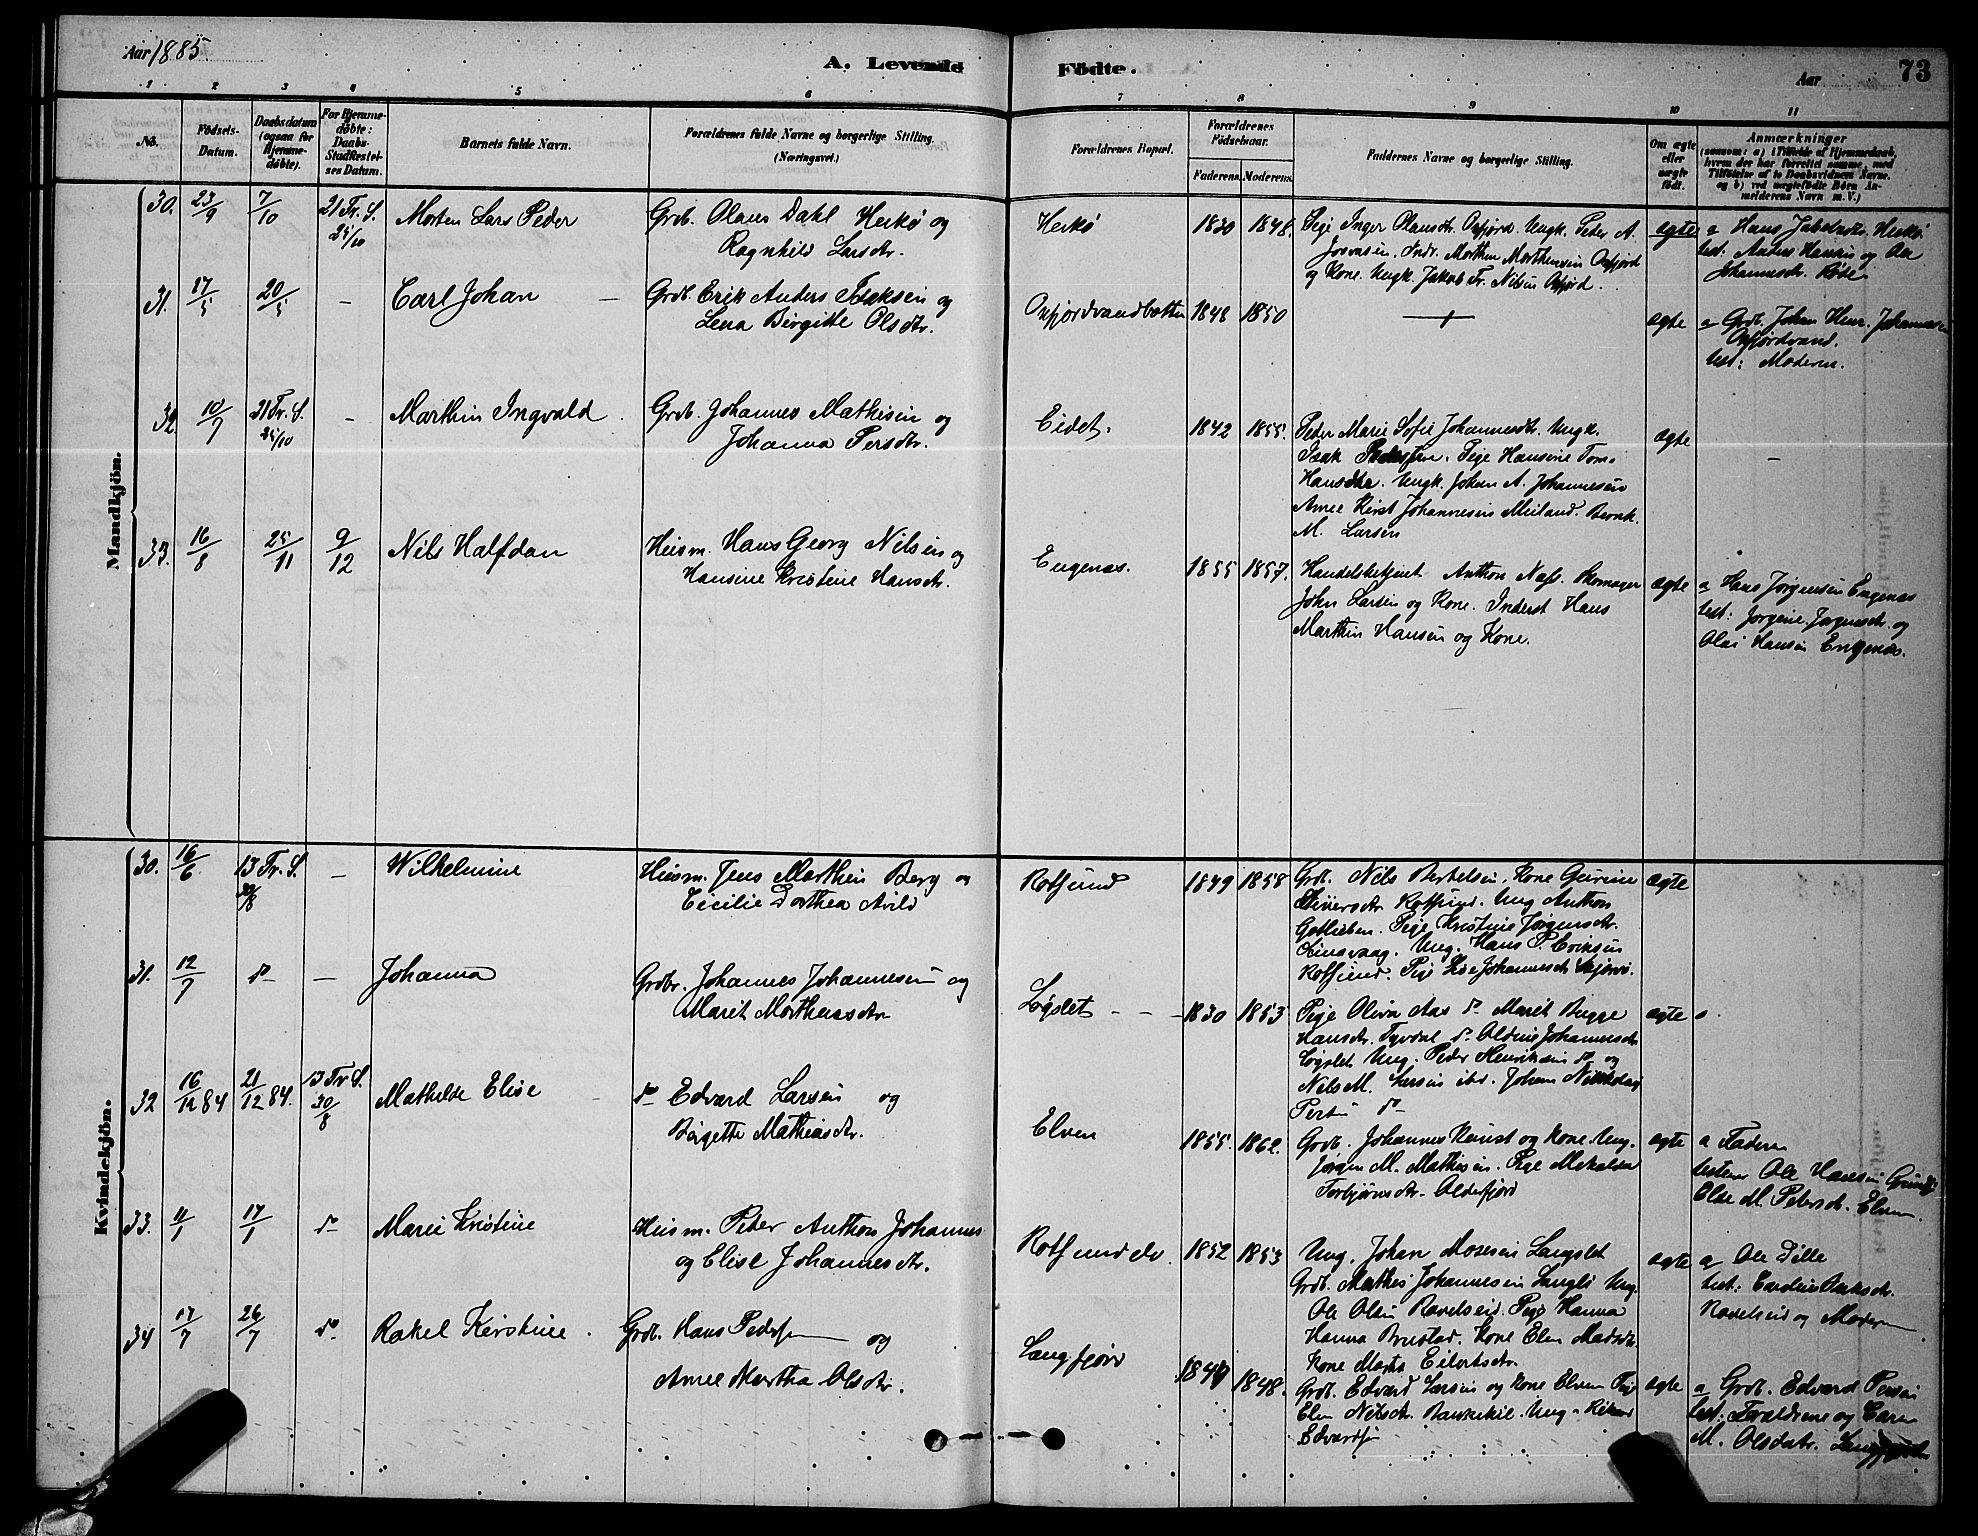 Aar 1885.
A. Levende Födte.
Aar
73
1 2 3 4 5 6 7 8 9 10 11
No.
Födsels-Datum.
Daabsdatum (ogsaa for Hjemmedöbte).
For Hjemmedöbte: Daabs-Stadfestelses Datum.
Barnets fulde Navn.
Forældrenes fulde Navne og borgerlige Stilling. (Næringsvei.)
Forældrenes Bopæl.
Forældrenes Födselsaar.
Faderens. Moderens.
Faddernes Navne og borgerlige Stilling.
Om ægte eller uægte födt.
Anmærkninger
(saasom: a) i Tilfælde af Hjemmedaab, hvem der har forrettet samme, med Tilföielse af to Daabsvidners Navne. og b) ved uægtefödte Börn Anmelderens Navn m. V.)
Mandkjön.
30. 23/9 7/10 21 Tr. S. 25/10 Morten Lars Peder
Grdb. Olaus Dahl Herkø og
Ragnhild Larsdtr.
Herkø 1830 1848.
Pige Inger Olausdtr. Oxfjord. Ungk. Peder A.
Jovasen. Indr. Morthen Morthensen Oxfjord
og Kone. Ungk. Jakob Fr. Nilsen Oxfjord.
ægte
a Hans Jakobsdtr. Herkø.
test: Anders Hansen og
Johannesdtr.
31. 17/5 20/5 - Carl Johan -
Grdb. Erik Anders Isaksen og
Lena Birgitte Olsdtr.
Oxfjordvandbotten 1848 1850
ægte
a Grdb. Johan Henr. Johannesen
Oxfjordvand.
test: Moderen.
32. 10/7 21 Tr. S. 25/10 - Marthin Ingvald.
Grdb. Johannes Mathisen og
Johanna Persdtr.
Eidet. 1842 1855.
Peder Marie Sofie Johannesdtr. Ungk.
Isak Pedersen. Pige Hansine Tom.
Hansdtr. Ungk. Johan A. Johannesen
Anne Kirst. Johannesen Meiland. Bernh.
M. Larsen
ægte -
33. 16/8 25/11 9/12 Nils Halfdan
Husm. Hans Georg Nilsen og
Hansine Kristine Hansdtr.
Engenæs. 1855 1857.
Handelsbetjent Anthon Næss. Skomager
John Larsen og Kone. Inderst Hans
Marthin Hansen og Kone.
ægte
a Hans Jørgensen Engenæs
test: Jørgine Jørgensdtr. og
Olai Hansen Engenæs.
Kvindekjön.
30. 16/6 13 Tr. S. 30/8 - Wilhelmine
Husm. Jens Marthin Berg og
Cecilie Dorthea Arild
Rotsund 1849 1858
Grdb. Nils Bertelsen. Kone Gurine
Rotsund. Ung Anthon
Gotlieben. Pige Kristine Jørgensdtr.
Ung. Hans P. Evensen
Rotsund. Pige Lise Johannesdtr. Skjervø.
ægte
31. 12/7 do - Johanna
Grdbr. Johannes Johannesen og
Marit Morthensdtr
Løgslet - - - 1830 1853
Pige Oliva Aas do Marit Bugge
Hansdtr. do Oldine Johannesdtr
Løgslet Ung. Peder Henriksen do og
Nils M. Larsen ibd. Johan Nikolay
do
ægte
32 16/12 84 21/12 84. 13 Tr. S. 30/8 Mathilde Elise
do Edvard Larsen og
Birgitte Mathisdtr.
Elven 1855. 1862.
Grdb. Johannes Kaust og Kone. Ung.
Jørgen M. Mathisen. Pige Mekaline
Torbjørnsdtr. Olderfjord
ægte
a Faderen
testene Ole Hansen
Else M. Petersdtr. Elven.
33. 11/1 17/1 do Marie Kristine
Husm. Peder Anthon Johannes
og Elise Johannesdtr.
Rotsundelv. 1852 1853
Ung. Johan Mosesen Langslet
Grdb. Mathis Johannesen Langli Ung.
Ole Olsen Ravelseid. Pige Hanna
Hanna Brustad. Kone Elen Madsdtr.
Kone Marta Eilertsdtr.
ægte
a Ole Dille
test: Isaksdtr.
Ravelseid og Moderen
34 17/7 26/7 do Rakel Kirstine.
Grdb. Hans Pedersen og
Anne Martha Olsdtr.
Langfjord 1848.
Grdb. Edvard Larsen og Kone Elven Pige
Elen Nilsdtr. Bankekil. Ung.
Edvardsen
ægte
a Grdb. Edvard Persen
test: Forældrene og Caren
M. Olsdatr. Langfjord